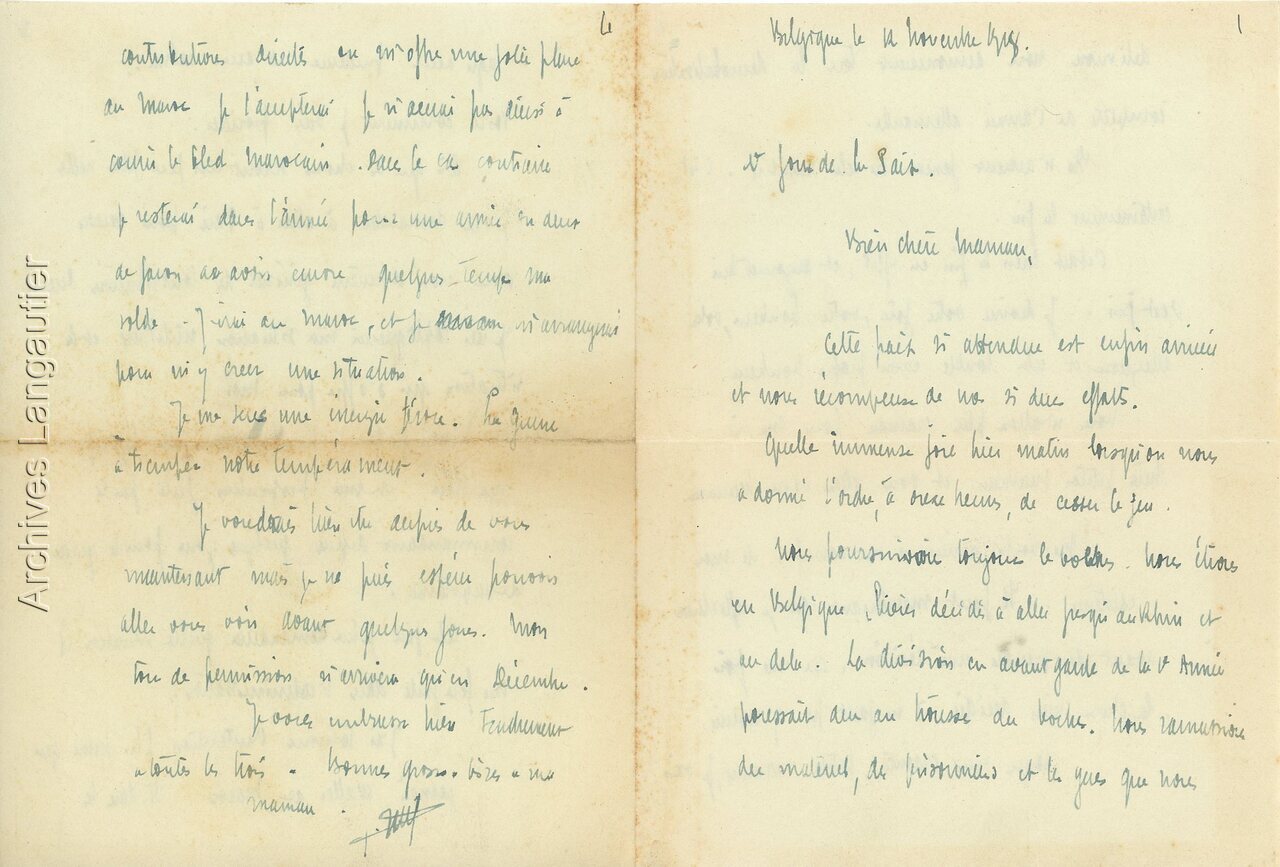 1
Belgique le 12 Novembre 1918.
1er jour de la Paix.
Bien chère Maman,
Cette paix si attendue est enfin arrivée
et nous récompense de nos si durs efforts.
Quelle immense joie hier matin lorsqu'on nous
a donné l'ordre, à onze heures, de cesser le feu.
Nous poursuivions toujours le boche. Nous étions
en Belgique, décidés à aller jusqu'au Rhin et
au delà. La division en avant garde de la 1e Armée
poussait dur au trousse du boche. Nous ramassions
du matériel, des prisonniers et les gens que nous
4
contributions directes on m'offre une jolie place
au Maroc je l'accepterai je n'aurai pas à
courir le bled marocain. Dans le cas contraire
je resterai dans l'armée pour une année ou deux
de façon à avoir encore quelques temps ma
solde. J'irai au Maroc, et je m'arrangerai
pour m'y créer une situation.
Je me sens une énergie féroce. La guerre
à trempée notre tempérament.
Je voudrais bien être auprès de vous
maintenant mais je ne puis espérer pouvoir
aller vous voir avant quelques jours. Mon
tour de permission n'arrivera qu'en Décembre.
Je vous embrasse bien tendrement
toutes les trois. Bonnes grosses bises à ma
maman.
Archives Langautier